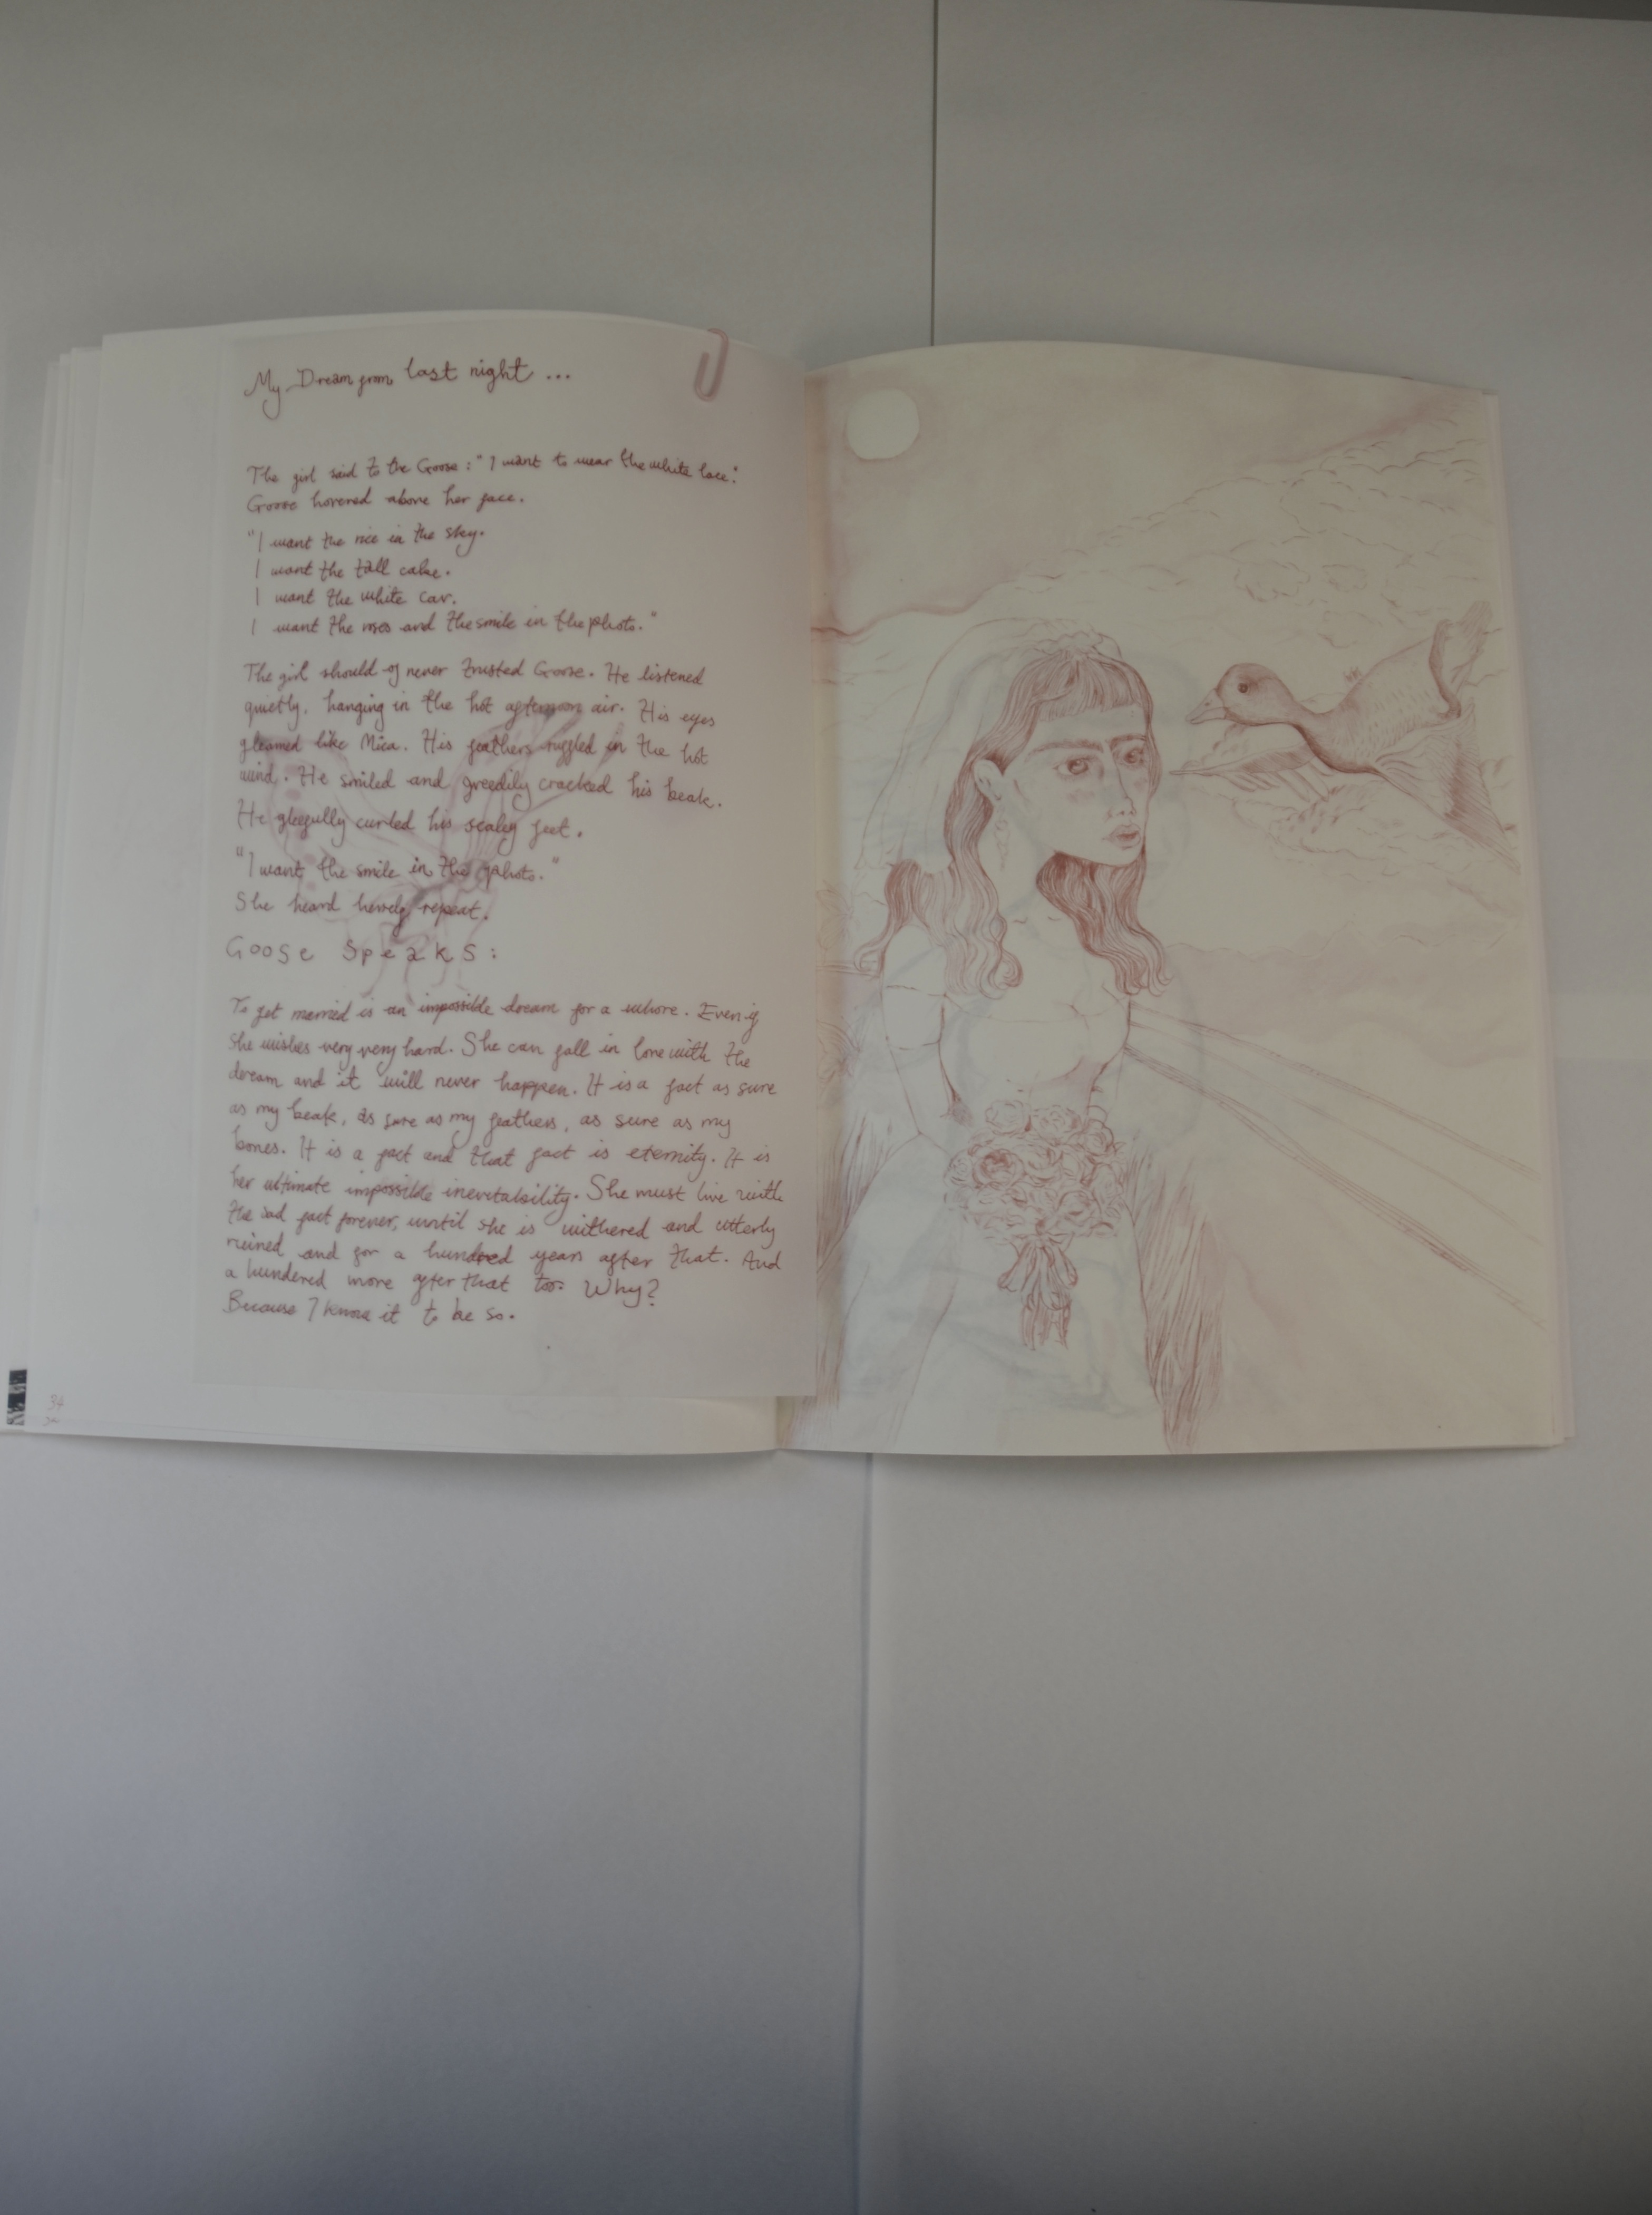 My Dream from last night ...
The girl said to the Goose: "I want to wear the white lace."
Goose hovered above her face.
"I want the rice in the sky.
I want the tall cake.
I want the white car.
I want the roses and the smile in the photo."
The girl should of never trusted Goose. He listened
quietly, hanging in the hot afternoon air. His eyes
gleamed like Mica. His feathers ruffled in the hot
wind. He smiled and greedily cracked his beak.
He gleefully curled his scaley feet.
"I want the smile in the photo."
She heard herself repeat.
Goose Speaks:
To get married is an impossible dream for a whore. Even if
she wishes very very hard. She can fall in love with the
dream and it will never happen. It is a fact as sure
as my beak, as sure as my feathers, as sure as my
bones. It is a fact and that fact is eternity. It is
her ultimate impossible inevitability. She must live with
the sad fact forever, until she is withered and utterly
ruined and for a hundred years after that. And
a hundered more after that too. Why?
Because I know it to be so.
34